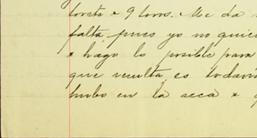 forete × 9 tons. Me da
falta, pues yo no quie
× hago lo posible para
que resulta, es todavi
hubo en la seca ×